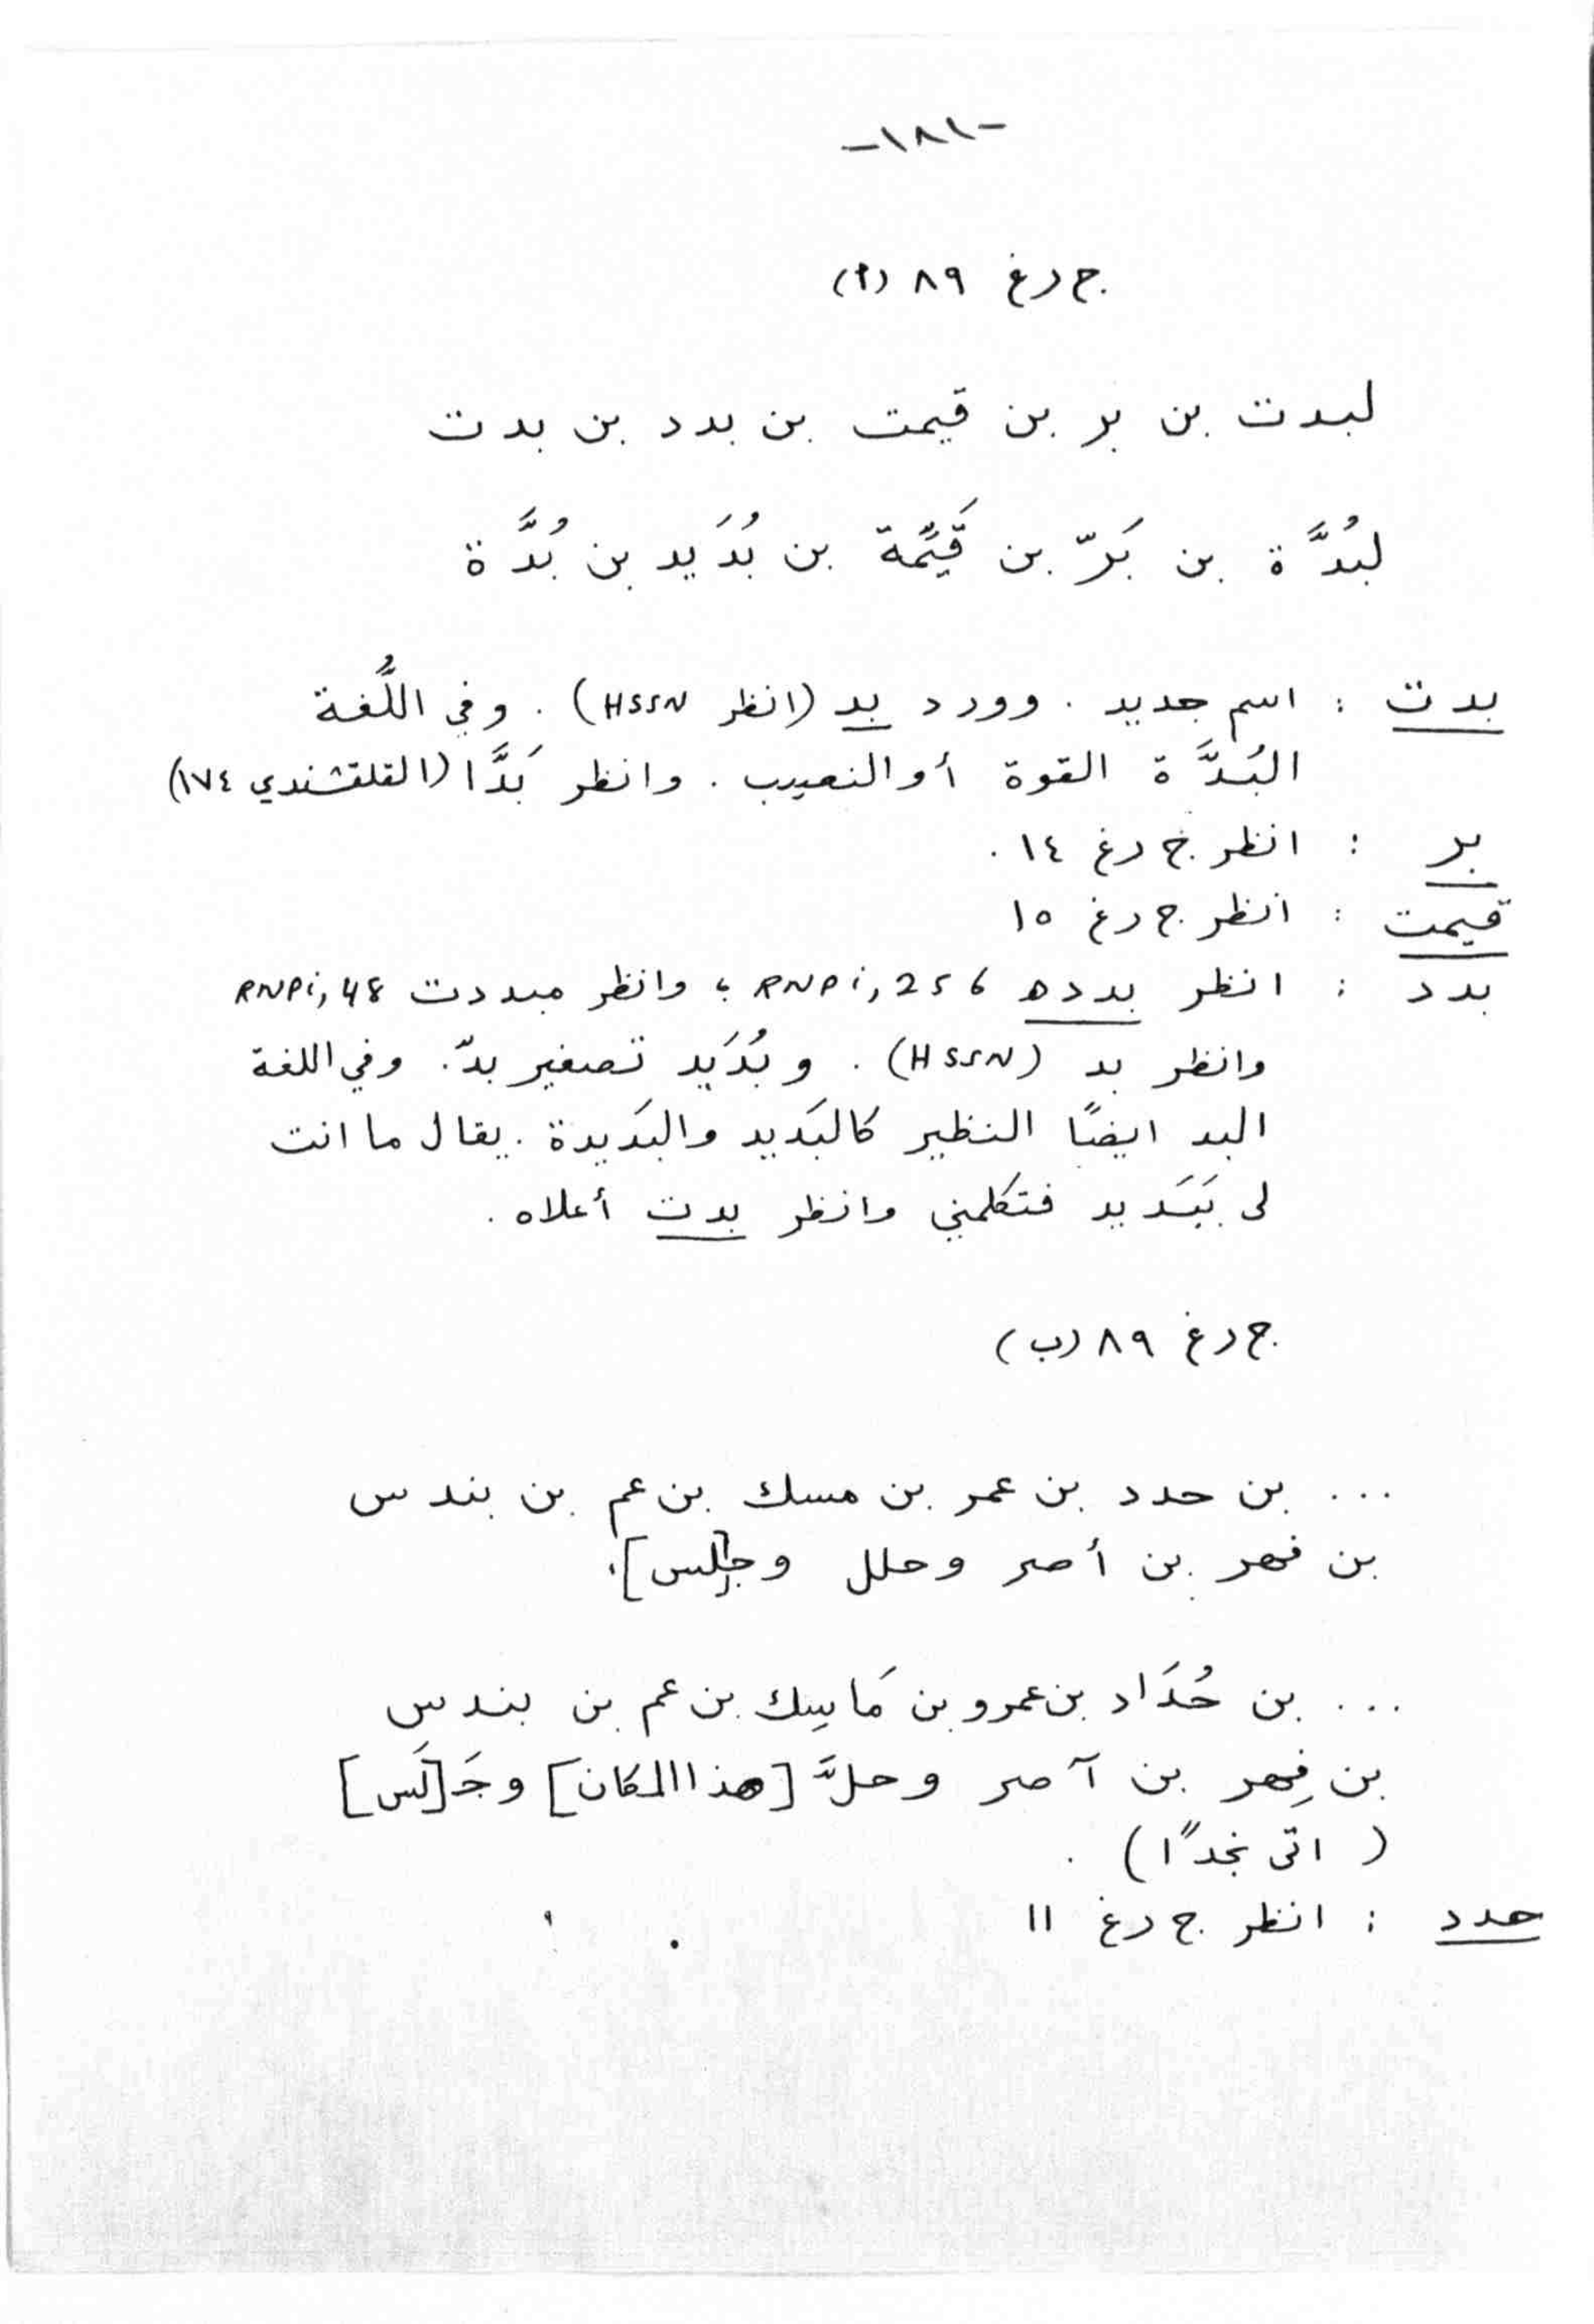 -١٨١-
ج ر غ ٨٩ (أ)
لبدت بن بر بن قيمت بن بدد بن بدت
لبُدَّة بن بَرّ بن قَيِّمة بن بُدَيد بن بُدَّة
بدت : اسم جديد . وورد بد (انظر HSSN) . وفي اللُّغة
البُدَّة القوة أو النصيب . وانظر بَدَّا (القلقشندي ١٧٤)
بر : انظر ج ر غ ١٤ .
قيمت : انظر ج ر غ ١٥
بدد : انظر بدده RNPi, 256 ؛ وانظر مبددت RNPi, 48
وانظر بد (HSSN) . وبُدَيد تصغير بدّ . وفي اللغة
البد ايضًا النظير كالبَديد والبَديدة . يقال ما انت
لى بِبَديد فتكلمني وانظر بدت أعلاه .
ج ر غ ٨٩ (ب)
... بن حدد بن عمر بن مسك بن عم بن بندس
بن فهر بن أصر وحلل وج[لس] .
... بن حُدَاد بن عمرو بن مَاسِك بن عم بن بندس
بن فِهر بن آصر وحلَّ [هذا المكان] وجَـ[لَس]
( اتى نجدًا ) .
حدد : انظر ج ر غ ١١